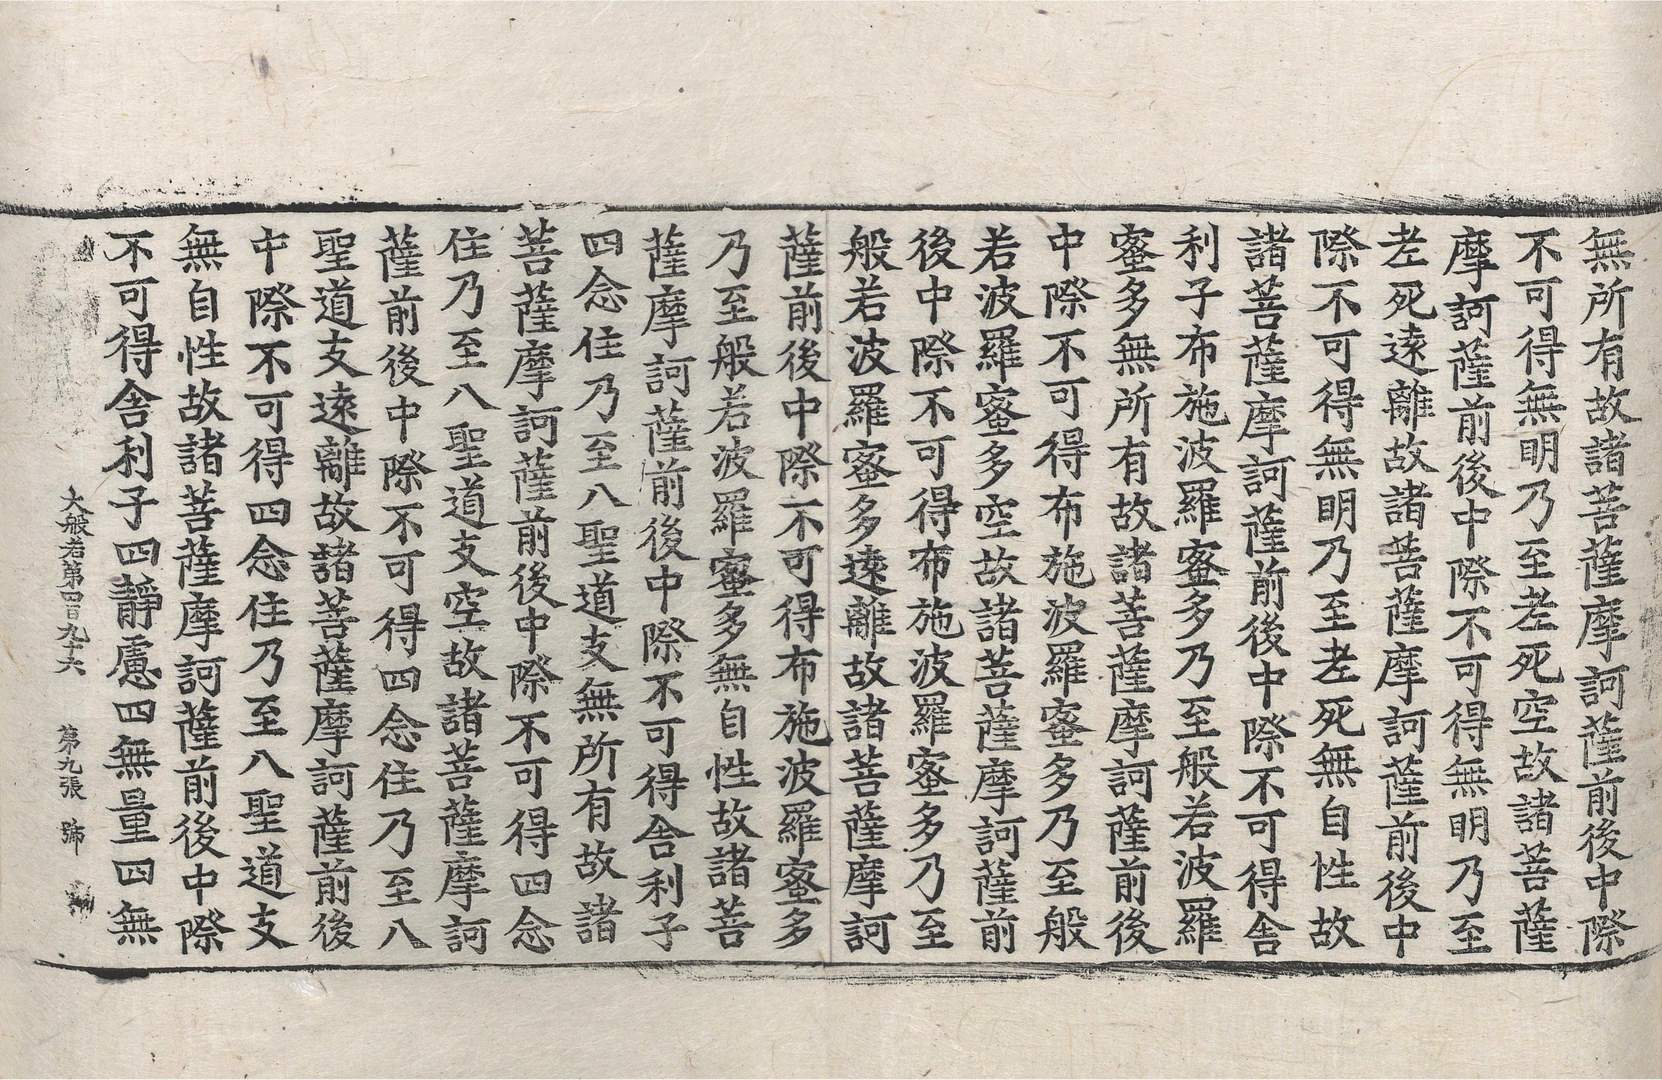 無所有故諸菩薩摩訶薩前後中際
不可得無明乃至老死空故諸菩薩
摩訶薩前後中際不可得無明乃至
老死遠離故諸菩薩摩訶薩前後中
際不可得無明乃至老死無自性故
諸菩薩摩訶薩前後中際不可得舍
利子布施波羅蜜多乃至般若波羅
蜜多無所有故諸菩薩摩訶薩前後
中際不可得布施波羅蜜多乃至般
若波羅蜜多空故諸菩薩摩訶薩前
後中際不可得布施波羅蜜多乃至
般若波羅蜜多遠離故諸菩薩摩訶
薩前後中際不可得布施波羅蜜多
乃至般若波羅蜜多無自性故諸菩
薩摩訶薩前後中際不可得舍利子
四念住乃至八聖道支無所有故諸
菩薩摩訶薩前後中際不可得四念
住乃至八聖道支空故諸菩薩摩訶
薩前後中際不可得四念住乃至八
聖道支遠離故諸菩薩摩訶薩前後
中際不可得四念住乃至八聖道支
無自性故諸菩薩摩訶薩前後中際
不可得舍利子四靜慮四無量四無
大般若第四百九十六 第九張 號